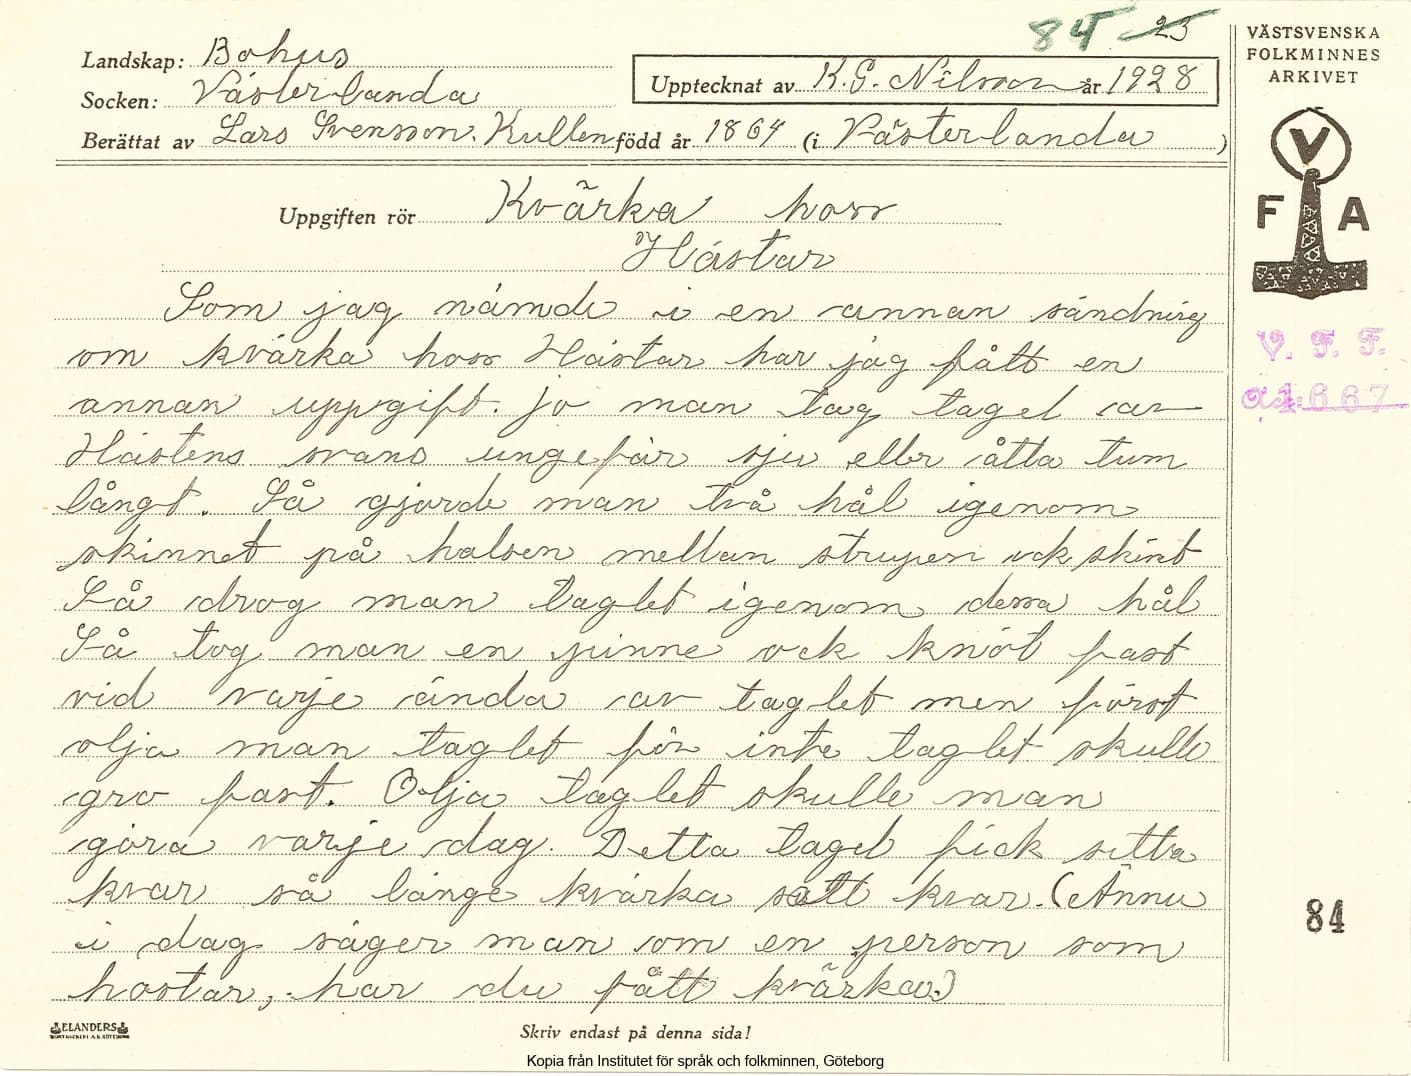 84 23
Landskap: Bohus
Socken: Västerlanda
Upptecknat av K.G. Nilsson år 1928
Berättat av Lars Svensson. Kullen född år 1864 (i Västerlanda )
VÄSTSVENSKA
FOLKMINNES
ARKIVET
V
F A
Uppgiften rör Kvärka hoss
Hästar
Som jag nämde i en annan sändnig
om kvärka hoss Hästar har jag fått en
annan uppgift. jo man tag tagel av
Hästens svans ungefär sju eller åtta tum
långt. Så gjorde man två hål igenom
skinnet på halsen mellan strupen ock skint
Så drog man taglet igenom dessa hål
Så tog man en pinne ock knöt fast
vid varje ända av taglet men först
olja man taglet för inte taglet skulle
gro fast. Olja taglet skulle man
göra varje dag. Detta tagel fick sitta
kvar så länge kvärka satt kvar. (Ännu
i dag säger man om en person som
hostar, har du fått kvärka.)
V. F. F.
1667
84
ELANDERS
Skriv endast på denna sida!
Kopia från Institutet för språk och folkminnen, Göteborg